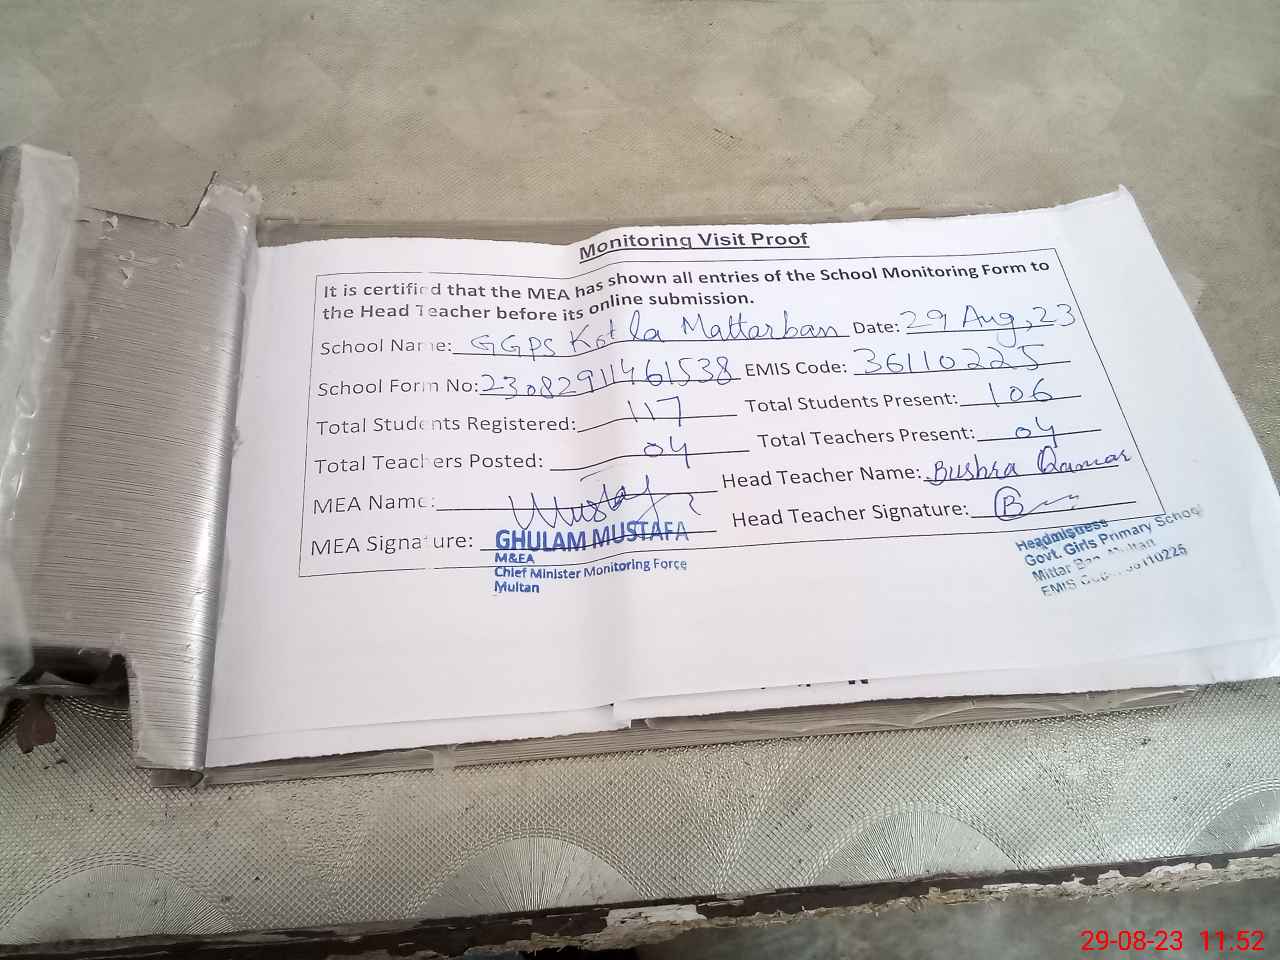 Monitoring Visit Proof
It is certified that the MEA has shown all entries of the School Monitoring Form to
the Head Teacher before its online submission.
School Name: GGPS Kotla Mattarban Date: 29 Aug, 23
School Form No: 23082911461538 EMIS Code: 36110225
Total Students Registered: 117 Total Students Present: 106
Total Teachers Posted: 04 Total Teachers Present: 04
MEA Name: Head Teacher Name: Bushra Qamar
MEA Signature: Head Teacher Signature:
GHULAM MUSTAFA
M&EA
Chief Minister Monitoring Force
Multan
Headmistress
Govt. Girls Primary School
Mittar Ban Multan
EMIS Code 36110225
29-08-23 11:52